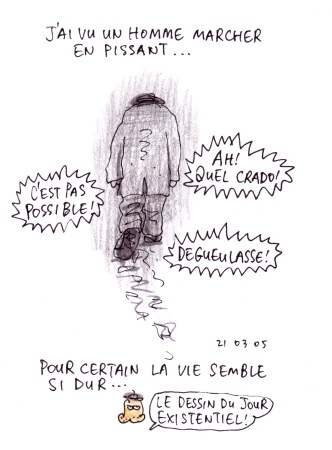 J'AI VU UN HOMME MARCHER
EN PISSANT...
AH!
QUEL CRADO!
C'EST PAS
POSSIBLE!
DEGUEULASSE!
21 03 05
POUR CERTAIN LA VIE SEMBLE
SI DUR...
LE DESSIN DU JOUR
EXISTENTIEL!